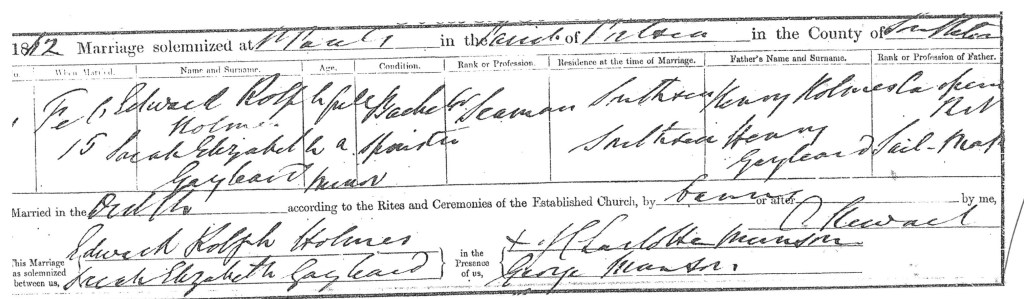 1862 Marriage solemnized at St Pauls in the Parish of Portsea in the County of Southton
When Married. Name and Surname. Age. Condition. Rank or Profession. Residence at the time of Marriage. Father's Name and Surname. Rank or Profession of Father.
Edward Rolph Holmes of full Bachelor Seaman Southsea Henry Holmes
15 Sarah Elizabeth Gayleard a minor Spinster Southsea Henry Gayleard Sail-Mak
Married in the according to the Rites and Ceremonies of the Established Church, by banns or after by me,
C Steward
This Marriage was solemnized between us,
Edward Rolph Holmes
Sarah Elizabeth Gayleard
in the Presence of us,
X Charlotte Munson
George Munson.